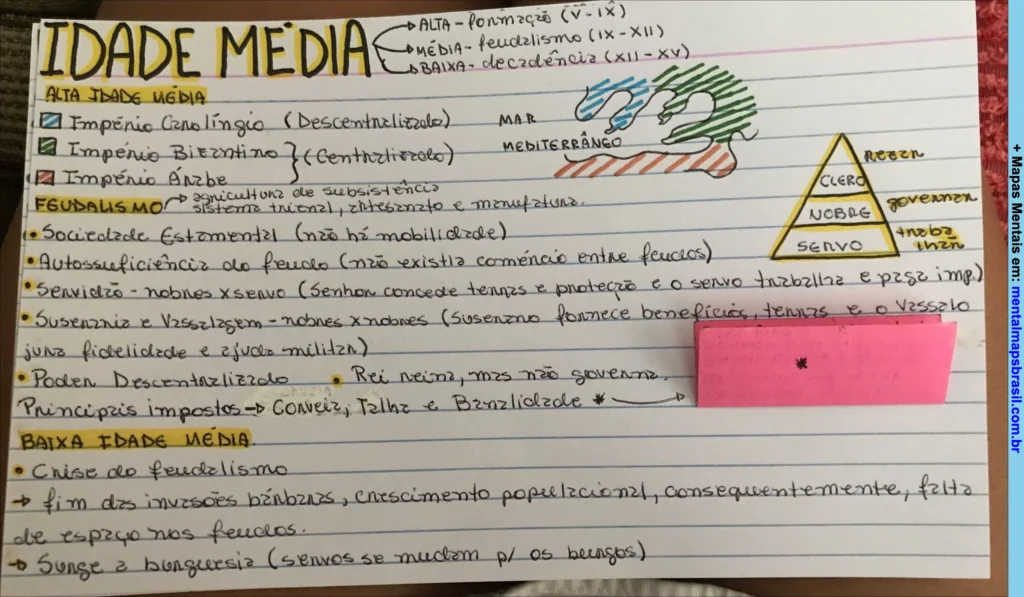 IDADE MÉDIA
ALTA - formação (V - IX)
MÉDIA - feudalismo (IX - XII)
BAIXA - decadência (XII - XV)
ALTA IDADE MÉDIA
Império Carolíngio (Descentralizado)
Império Bizantino
Império Árabe
(Centralizado)
MAR
MEDITERRÂNEO
CLERO
NOBRE
SERVO
rezar
governar
traba
lhar
FEUDALISMO → agricultura de subsistência
sistema trienal, artesanato e manufatura.
• Sociedade Estamental (não há mobilidade)
• Autossuficiência do feudo (não existia comércio entre feudos)
• Servidão - nobres x servo (Senhor concede terras e proteção e o servo trabalha e paga imp.)
• Suserania e Vassalagem - nobres x nobres (suserano fornece benefícios, terras e o vassalo
jura fidelidade e ajuda militar)
• Poder Descentralizado • Rei reina, mas não governa.
Principais impostos → Corveia, Talha e Banalidade * →
*
BAIXA IDADE MÉDIA.
• Crise do feudalismo
→ fim das invasões bárbaras, crescimento populacional, consequentemente, falta
de espaço nos feudos.
→ Surge a burguesia (servos se mudam p/ os burgos)
+ Mapas Mentais em: mentalmapsbrasil.com.br